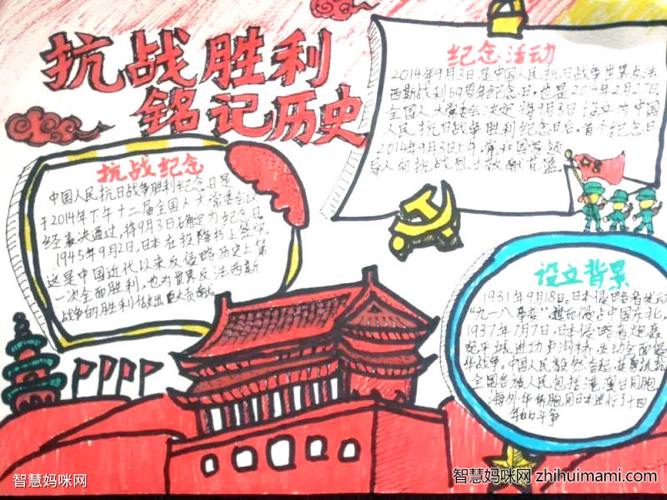 抗战胜利
铭记历史
纪念活动
2014年9月3日是中国人民抗日战争暨世界反法
西斯战利69周年纪念日,也是2014年2月27日
全国人大常委会决定将9月3日设立为中国
人民抗日战争胜利纪念日后,首个纪念日
2014年9月3日上午,党和国家领
导人向抗战烈士敬献花篮
抗战纪念
中国人民抗日战争胜利纪念日是
于2014年下午十二届全国人大常委会
经表决通过,将9月3日确定为纪念日
1945年9月2日,日本在投降书上签字
这是中国近代以来反侵略历史上第
一次全面胜利,也为世界反法西斯
战争的胜利做出巨大贡献
设立背景
1931年9月18日,日本侵略者发动
"九一八事变"
1937年7月7日,日本侵略者炮轰
宛平城进攻卢沟桥,发动全面侵
华战争。中国人民毅然奋起
全国各族人民包括港澳台同胞
海外华侨同日本进行了十四
年的斗争
智慧妈咪网
智慧妈咪网 zhihuimami.com